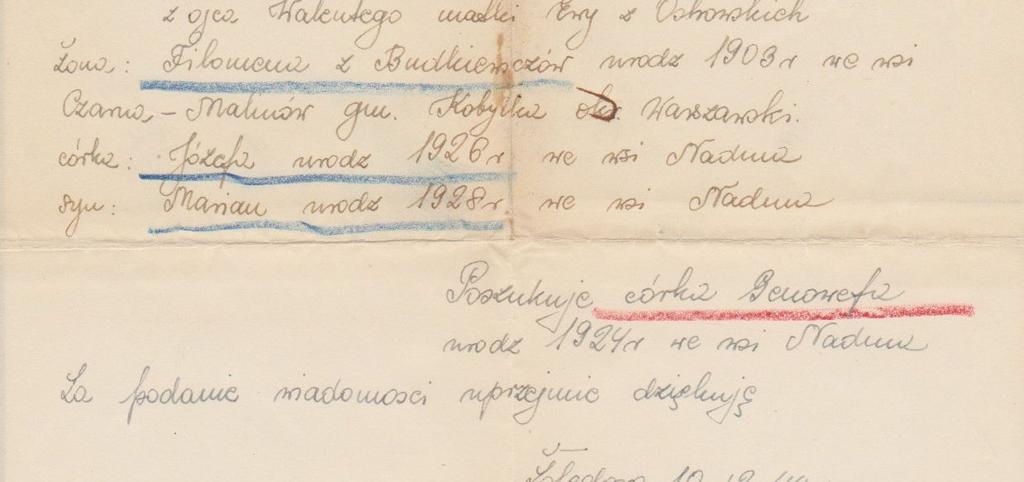 z ojca Walentego matki Ewy z Ostrowskich
Żona: Filomena z Budkiewiczów urodz 1903 r we wsi
Czarna - Malinów gm. Kobyłka Warszawski.
córka: Józefa urodz 1926 r we wsi Nadma
syn: Marian urodz 1928 r. we wsi Nadma
Poszukuje córka Genowefa
urodz 1924 r we wsi Nadma
Za podanie wiadomosci uprzejmie dziękuję